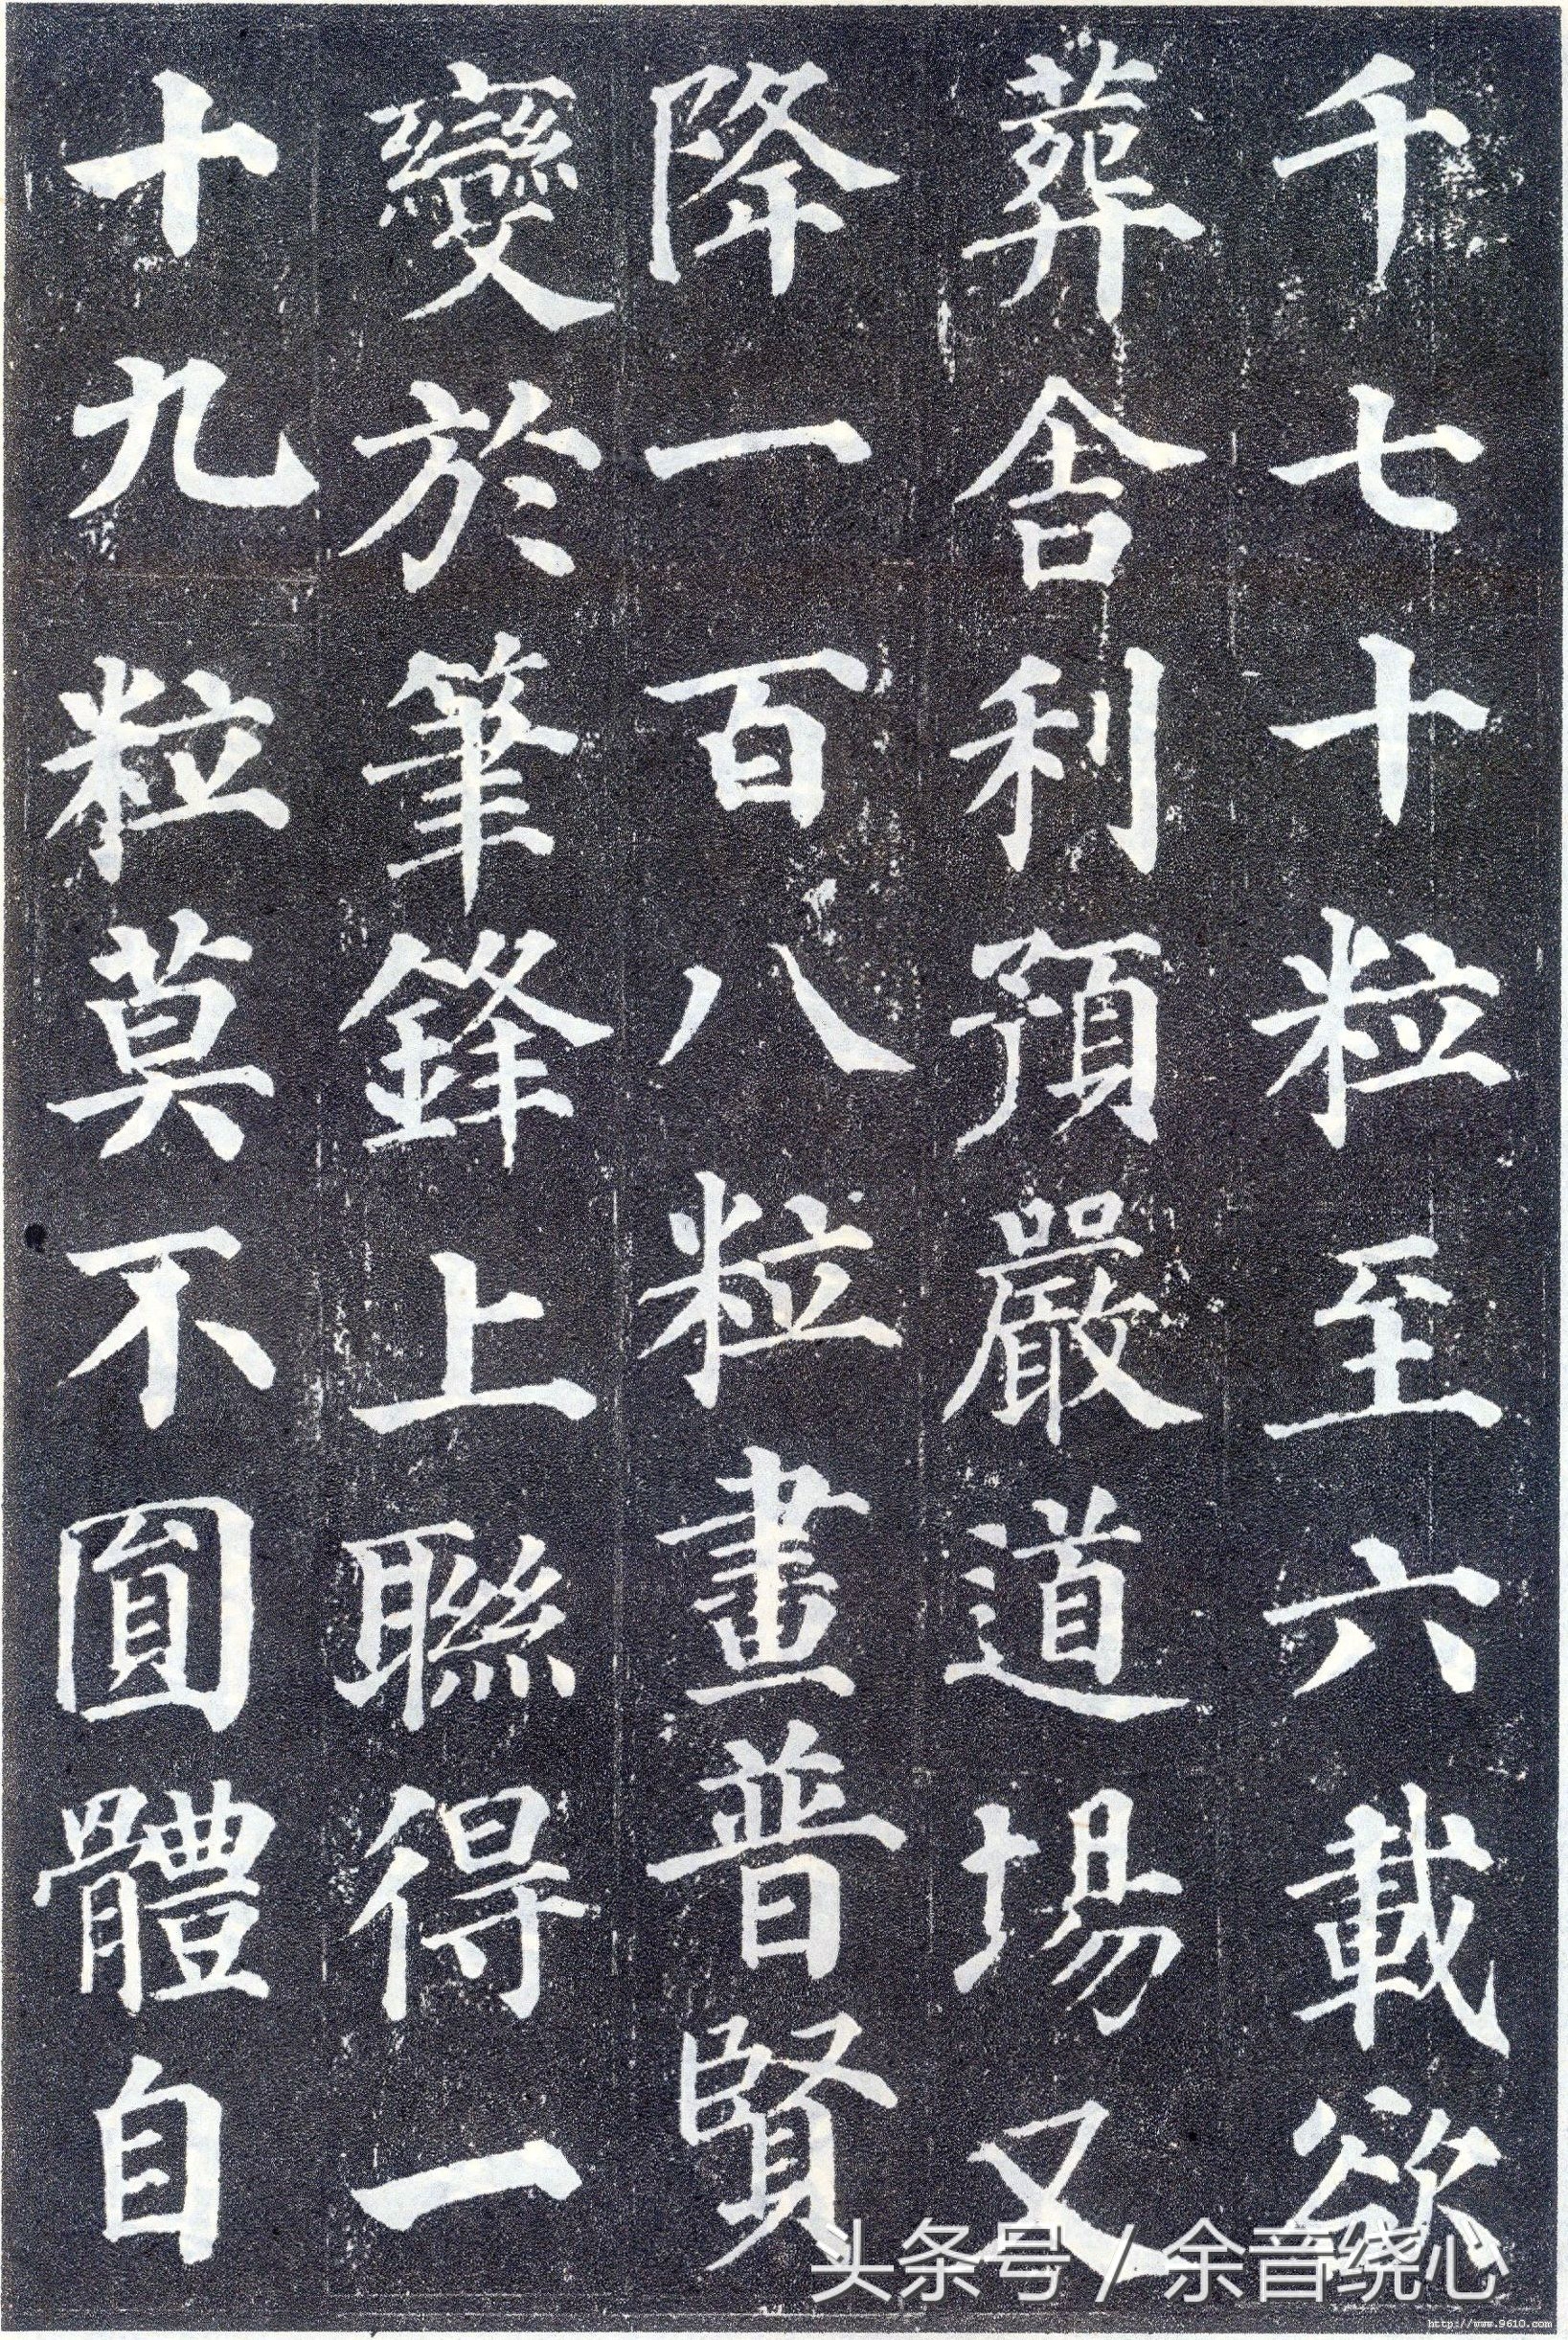 千七十粒至六載欲
葬舍利預嚴道場又
降一百八粒畫普賢
變於筆鋒上聯得一
十九粒莫不圓體自
头条号 / 余音绕心
http://www.9610.com